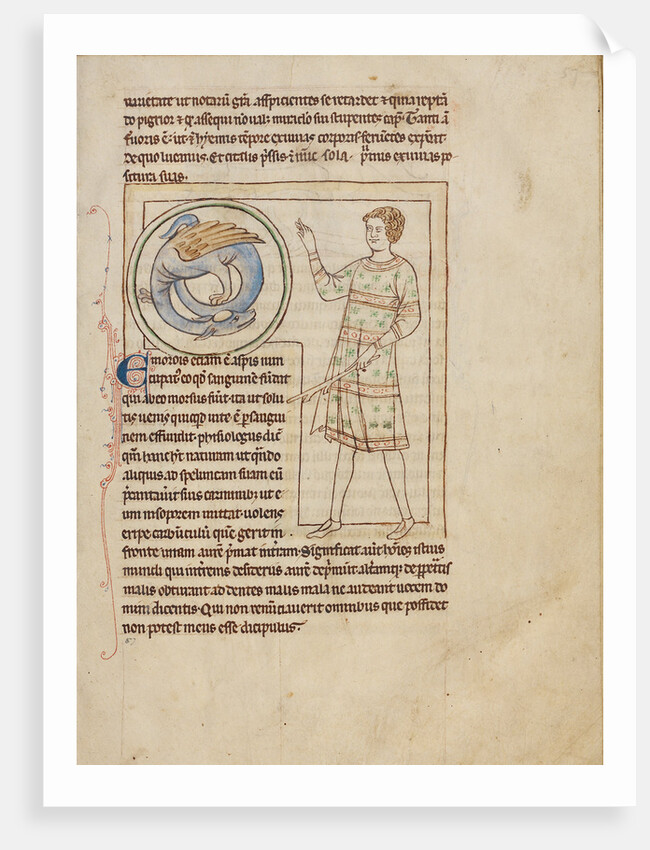 varietate ut notarū grā aspicientes se retardet & quia repta
do pigrior & qͥ assequi nō ual; miraclo sui stupentes capͭ. Tanti ā
feruoris ē: ut & hyemis tēpore exuuias corporis feruētes expōat.
de quo lucanus. Et scitalis spͥsis & nūc sola pͥtinus exuuias po
situra suas.
Emorois etiam ē aspis nun
cupatꝰ eo qd̓ sanguinē sudet
qui ab eo morsus fuit. ita ut solu
tis uenis quicqͥd uite ē p sangui
nem effundit. phisiologus dic̄
qm̄ hanc h̓t naturam ut qn̄do
aliquis ad speluncam suam eū
p̄cantauit suis carminib; ut e
um in soporem mittat. uolens
eripe carbūculū quē gerit in
fronte unam aurē p̄mat in trram. Significat aut̄ hōies istius
mundi qui in trenis desideriis aurē dep̄mūt. altamq; de ppetͣtis
malis obturant ad dentes malis mala ne audeant uocem do
mini dicentis. Qui non renūciauerit omnibus que possidet
non potest meus esse dicipulus.
57